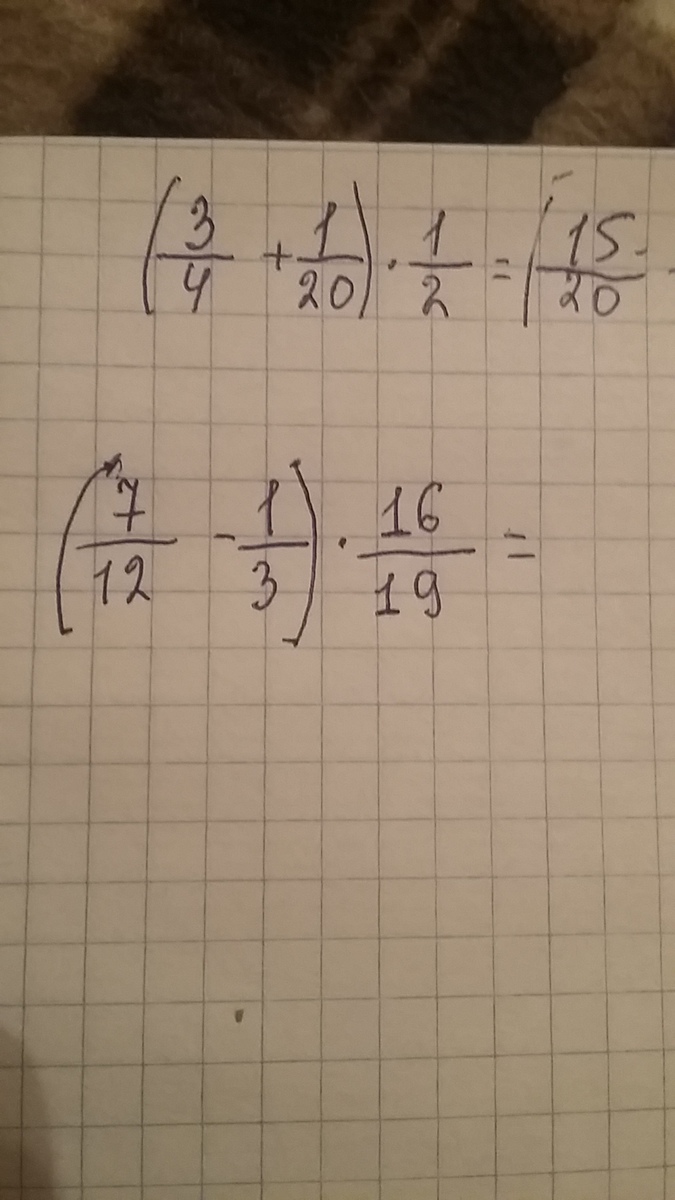 (3/4 + 1/20) · 1/2 = (15/20
(7/12 - 1/3) · 16/19 =